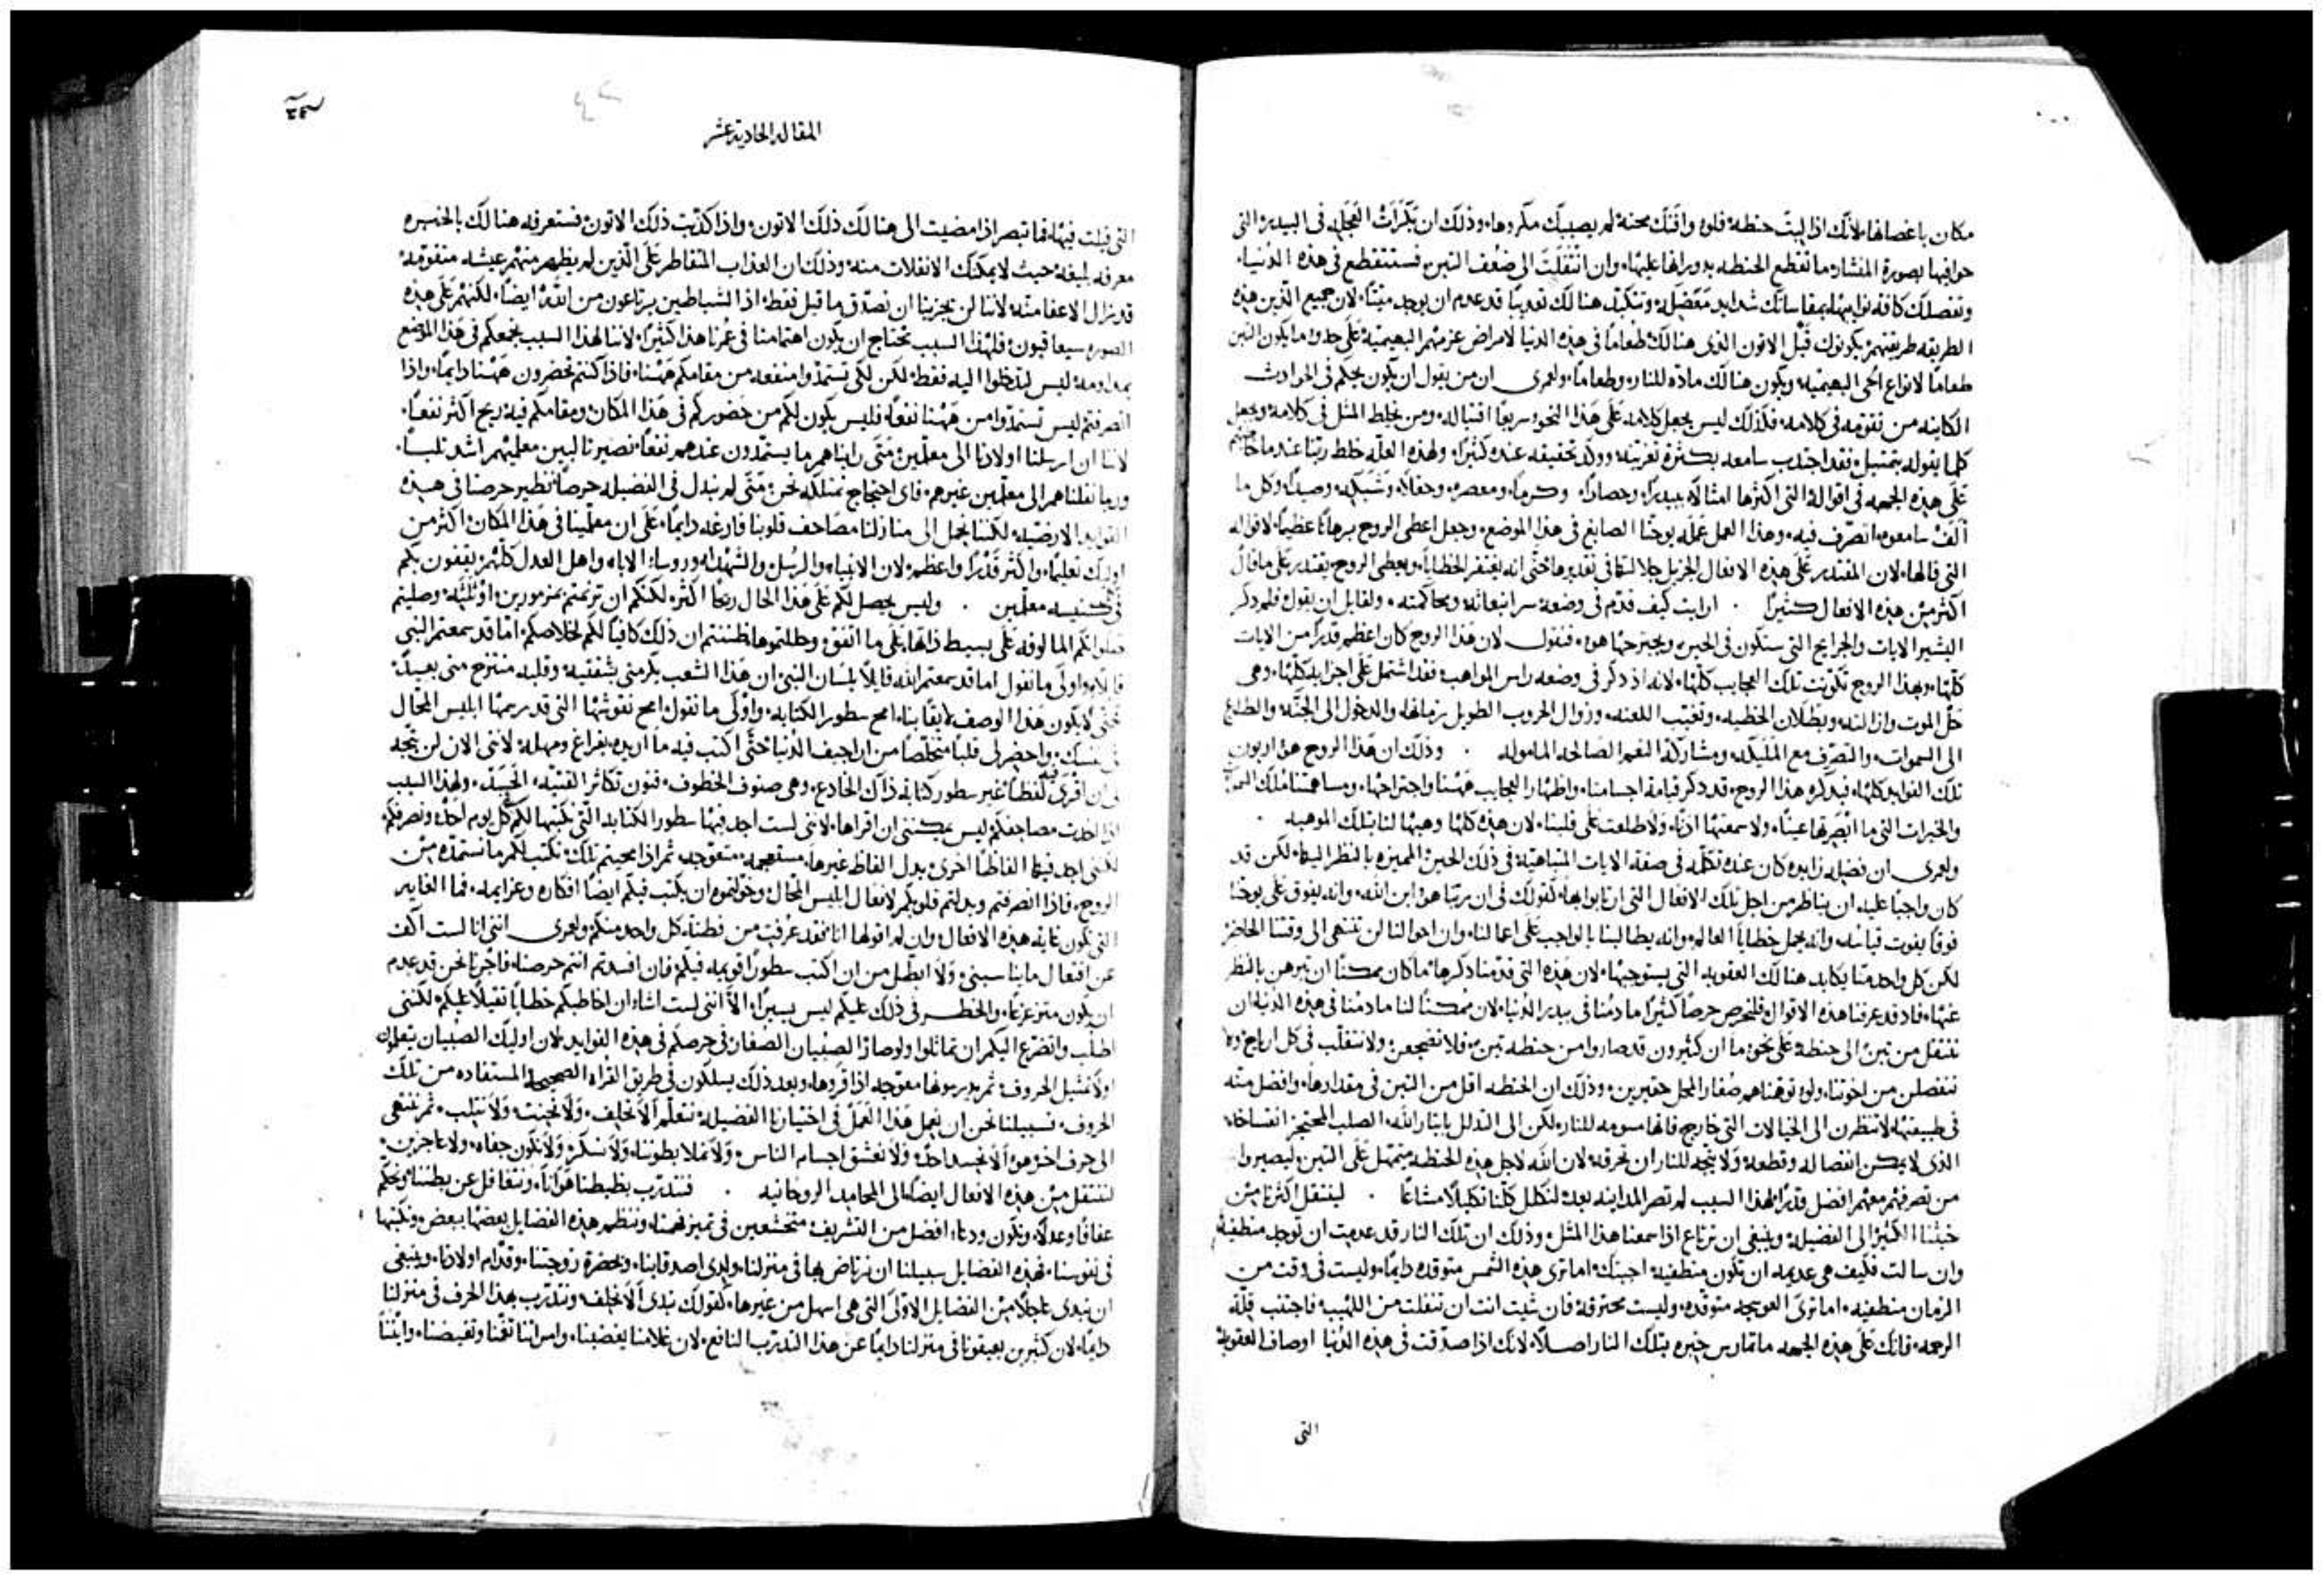 مكان باغصانها لانك اذا لبثت حنطة فلو وافتك محنة لم يصيبك مكروها وذلك ان بكرات العجله في البيدر التي
حوافيها بصورة المنشار ما تقطع الحنطه بدورانها عليها وان انتقلت الى ضعف التبن فستنقطع في هذه الدنيا
الطريقه طريقتهم يكونون قبل الاتون الذي هنالك طعاما في هذه الدنيا لامراض عزمهم البهيميه على حذو ما يكون التبن
طعاما لانواع الحي البهيميه ويكون هنالك ماده للنار وطعاما ولعمري ان من يقول ان يكون يحكم في الحوادث
الكاينه من تقومه في كلامه فلذلك ليس يجعل كلامه على هذا النحو سريعا اقتباله ومن يخلط المثل في كلامه ويجعل
على هذه الجهه في اقواله التي اكثرها امثاله بيدرا وحصادا وكرما ومعصره وحقلا وشبكه وصيدا وكل ما
الف سامعوه التصرف فيه وهذا العمل عمله يوحنا الصابغ في هذا الموضع وجعل اعطى الروح برهانا عظيما لاقواله
التي قالها لان المقتدر على هذه الافعال الجزيل جلالتها في تقديرها حتى انه يغتفر الخطايا ويعطي الروح يقتدر على ما قال
اكثر من هذه الافعال كثيرا . ارايت كيف قدم في وضعه سر انبعاثه ومحاكمته ولقايل ان يقول فلم ذكر
البشير الايات والجرايح التي ستكون في الحين ويجترحها هو فنقول لان هذا الروح كان اعظم قدرا من الايات
كلها وبهذا الروح تكونت تلك العجايب كلها لانه اذ ذكر في وضعه راس المواهب فقد اشتمل على اجزايه كلها وهي
حل الموت وازالته وبطلان الخطيه وتغيب اللعنه وزوال الحروب الطويل زمانها والدخول الى الجنه والطلوع
الى السموات والتصرف مع المليكه ومشاركة النعم الصالحه الماموله . وذلك ان هذا الروح هو اربون
تلك الفوايد كلها فبذكره هذا الروح قد ذكر قيامة اجسامنا واظهار العجايب ههنا واجتراحها ومساهمتنا ملك السما
والخيرات التي ما ابصرتها عينا ولا سمعتها اذنا ولا طلعت على قلبنا لان هذه كلها وهبها لنا بتلك الموهبه .
ولعمري ان فضيله زايده كان عنده تكلمه في صفة الايات المتناهيه في ذلك الحين المميزه بالنظر اليها لكن قد
كان واجبا عليه ان يناظر من اجل تلك الافعال التي ارتابوا بها كقولك في ان ربنا هو ابن الله وانه يفوق على يوحنا
فوقا يفوت قياسه وانه يحمل خطايا العالم وانه يطالبنا بالواجب على اعمالنا وان احوالنا لن تنتهي الى وقتنا الحاضر
لكن كل واحد منا يكابد هنالك العقوبه التي يستوجبها لان هذه التي قدمنا ذكرها ما كان ممكنا ان تبرهن بالنظر
عنها فاذ قد عرفنا هذه الاقوال فلنحرص حرصا كثيرا ما دمنا في بيدر الدنيا لان ممكنا لنا ما دمنا في هذه الدنيا ان
ننتقل من تبن الى حنطة على نحو ما ان كثيرون قد صاروا من حنطه تبن فلا نضجعن ولا نتقلب في كل ارياح ولا
ننفصلن من اخوتنا ولو توهمناهم صغار المحل حقيرين وذلك ان الحنطه اقل من التبن في مقدارها وافضل منه
في طبيعتها لا تنظرن الى الخيالات التي خارج فانها مسومه للنار لكن الى التذلل بايثار الله الصلب المحتجز انفساخه
الذي لا يمكن انفصاله وقطعه ولا يتجه للنار ان تحرقه لان الله لاجل هذه الحنطه يتمهل على التبن ليصيروا
من تصرفهم معهم افضل قدرا لهذا السبب لم تصر المداينه بعد لنكلل كلنا تكليلا مشاعا . لينتقل اكثرنا من
خبثنا الكثير الى الفضيله وينبغي ان نرتاع اذا سمعنا هذا المثل وذلك ان تلك النار قد عدمت ان توجد منطفيه
وان سالت فكيف هي عديمه ان تكون منطفيه اجبتك اما ترى هذه الشمس متوقده دايما وليست في وقت من
الزمان منطفيه اما ترى العوسجه متوقده وليست محترقه فان شيت انت ان تنفلت من اللهيب فاجتنب قلة
الرحمه فانك على هذه الجهه ما تمارس خبره بتلك النار اصلا لانك اذا صدقت في هذه الدنيا اوصاف العقوبة
التي
المقاله الحادية عشر
التي قيلت فيها فما تبصر اذا مضيت الى هنالك ذلك الاتون واذا كذبت ذلك الاتون فستعرفه هنالك بالخبره
معرفه بليغه حيث لا يمكنك الانفلات منه وذلك ان العذاب المتقاطر على الذين لم يظهر منهم عيشه متقومه
قد نزال الاعفا منه لاننا لن يجزينا ان نصدق ما قيل فقط اذ الشياطين يرتاعون من الله ايضا لكنهم على هذه
الصوره سيعاقبون فلهذا السبب نحتاج ان يكون اهتمامنا في عمرنا هذا كثيرا لاننا لهذا السبب نجمعكم في هذا الموضع
بمداومه ليس لتدخلوا اليه فقط لكن لكي تستمدوا منفعه من مقامكم ههنا فاذا كنتم تحضرون ههنا دايما واذا
انصرفتم ليس تستمدوا من ههنا نفعا فليس يكون لكم من حضوركم في هذا المكان ومقامكم فيه ربح اكثر نفعا
لاننا ان ارسلنا اولادنا الى معلمين متى رايناهم ما يستمدون عندهم نفعا نصير ثالبين معلميهم اشد ثلبا
وربما نقلناهم الى معلمين غيرهم فاي احتجاج نمتلكه نحن متى لم نبذل في الفضيله حرصا نظير حرصنا في هذه
الفوايد الارضيه لكننا نحمل الى منازلنا مصاحف قلوبنا فارغه دايما على ان معلمينا في هذا المكان اكثر من
اوليك تعليما واكثر قدرا واعظم لان الانبياء والرسل والشهدا وروساء الاباء واهل العدل كلهم يقفون بكم
في كنيسه معلمين . وليس يحصل لكم على هذا الحال ربحا اكثر لكنكم ان ترنمتم بمزمورين او ثلثه وصليتم
صلواتكم المالوفه على بسيط ذاتها على ما اتفق وحللتموها ظننتم ان ذلك كافيا لكم لخلاصكم اما قد سمعتم النبي
قايلا واولى ما نقول اما قد سمعتم الله قايلا بلسان النبي ان هذا الشعب يكرمني بشفتيه وقلبه منتزح مني بعيدا
حتى لا يكون هذا الوصف لايقا بنا امح سطور الكتابه واولى ما نقول امح نقوشها التي قد رسمها ابليس المحال
في نفسك واحضر لي قلبا متخلصا من اراجيف الدنيا حتى اكتب فيه ما اريده بفراغ ومهله لانني الان لن يتجه
لي ان اقرى لفظا غير سطور كتابة ذاك الخادع وهي صنوف الخطوف فنون تكاثر القنيه الحسد ولهذا السبب
اذا اخذت مصاحفكم ليس يمكنني ان اقراها لانني لست اجد فيها سطور الكتابه التي نكتبها لكم كل يوم احد ونصرفكم
لكنني اجد فيها الفاظا اخرى بدل الفاظ غيرها مستعجمه متعوجه ثم اذا محيتم تلك نكتب لكم ما نستمده من
الروح فاذا انصرفتم وبذلتم قلوبكم لافعال ابليس المحال وخولتموه ان يكتب فيكم ايضا افكاره وعزايمه فما الغايه
التي تكون غاية هذه الافعال وان لم اقولها انا فقد عرفت من فطنة كل واحد منكم ولعمري انني انا لست اكف
عن افعال ما يناسبني ولا ابطل من ان اكتب سطورا قويمه فيكم فان افسدتم انتم حرصنا فاجرنا نحن قد عدم
ان يكون متزعزعا والخطر في ذلك عليكم ليس يسيرا الا انني لست اشاء ان اخاطبكم خطابا ثقيلا عليكم لكنني
اطلب واتضرع اليكم ان تماثلوا ولو صار الصبيان الصغار في حرصكم في هذه الفوايد لان اوليك الصبيان يتعلمون
اولا تمثيل الحروف ثم يدربونها معوجه اذا قروها وبعد ذلك يسلكون في طريق القراه الصحيحه المستفاده من تلك
الحروف فسبيلنا نحن ان نعمل هذا العمل في اختيارنا الفضيله نتعلم الا نحلف ولا نحنث ولا نثلب ثم ننتهي
الى حرف اخر هو الا نحسد احد ولا نعشق اجسام الناس ولا نملا بطوننا ولا نسكر ولا نكون جفاه ولا عاجزين
لننتقل من هذه الافعال ايضا الى المحامد الروحانيه . فنتدرب بضبطنا هواتنا ونتغافل عن بطننا ونحكم
عفافا وعدلا ونكون ودعاء افضل من التشريف متخشعين في تميز فهمنا وننظم هذه الفضايل بعضها ببعض ونكتبها
في نفوسنا فهذه الفضايل سبيلنا ان نرتاض بها في منزلنا ولدى اصدقاينا وبحضرة زوجتنا وقدام اولادنا وينبغي
ان نبدى عاجلا من الفضايل الاولى التي هي اسهل من غيرها كقولك نبدى الا نحلف ونتدرب بهذا الحرف في منزلنا
دايما لان كثيرين يعيقونا في منزلنا دايما عن هذا التدرب النافع لان غلامنا يغضبنا وامراتنا تغمنا وتغيضنا وابننا